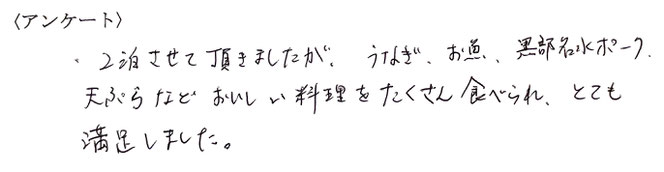 〈アンケート〉
・2泊させて頂きましたが、うなぎ、お魚、黒部名水ポーク、
天ぷらなどおいしい料理をたくさん食べられ、とても
満足しました。